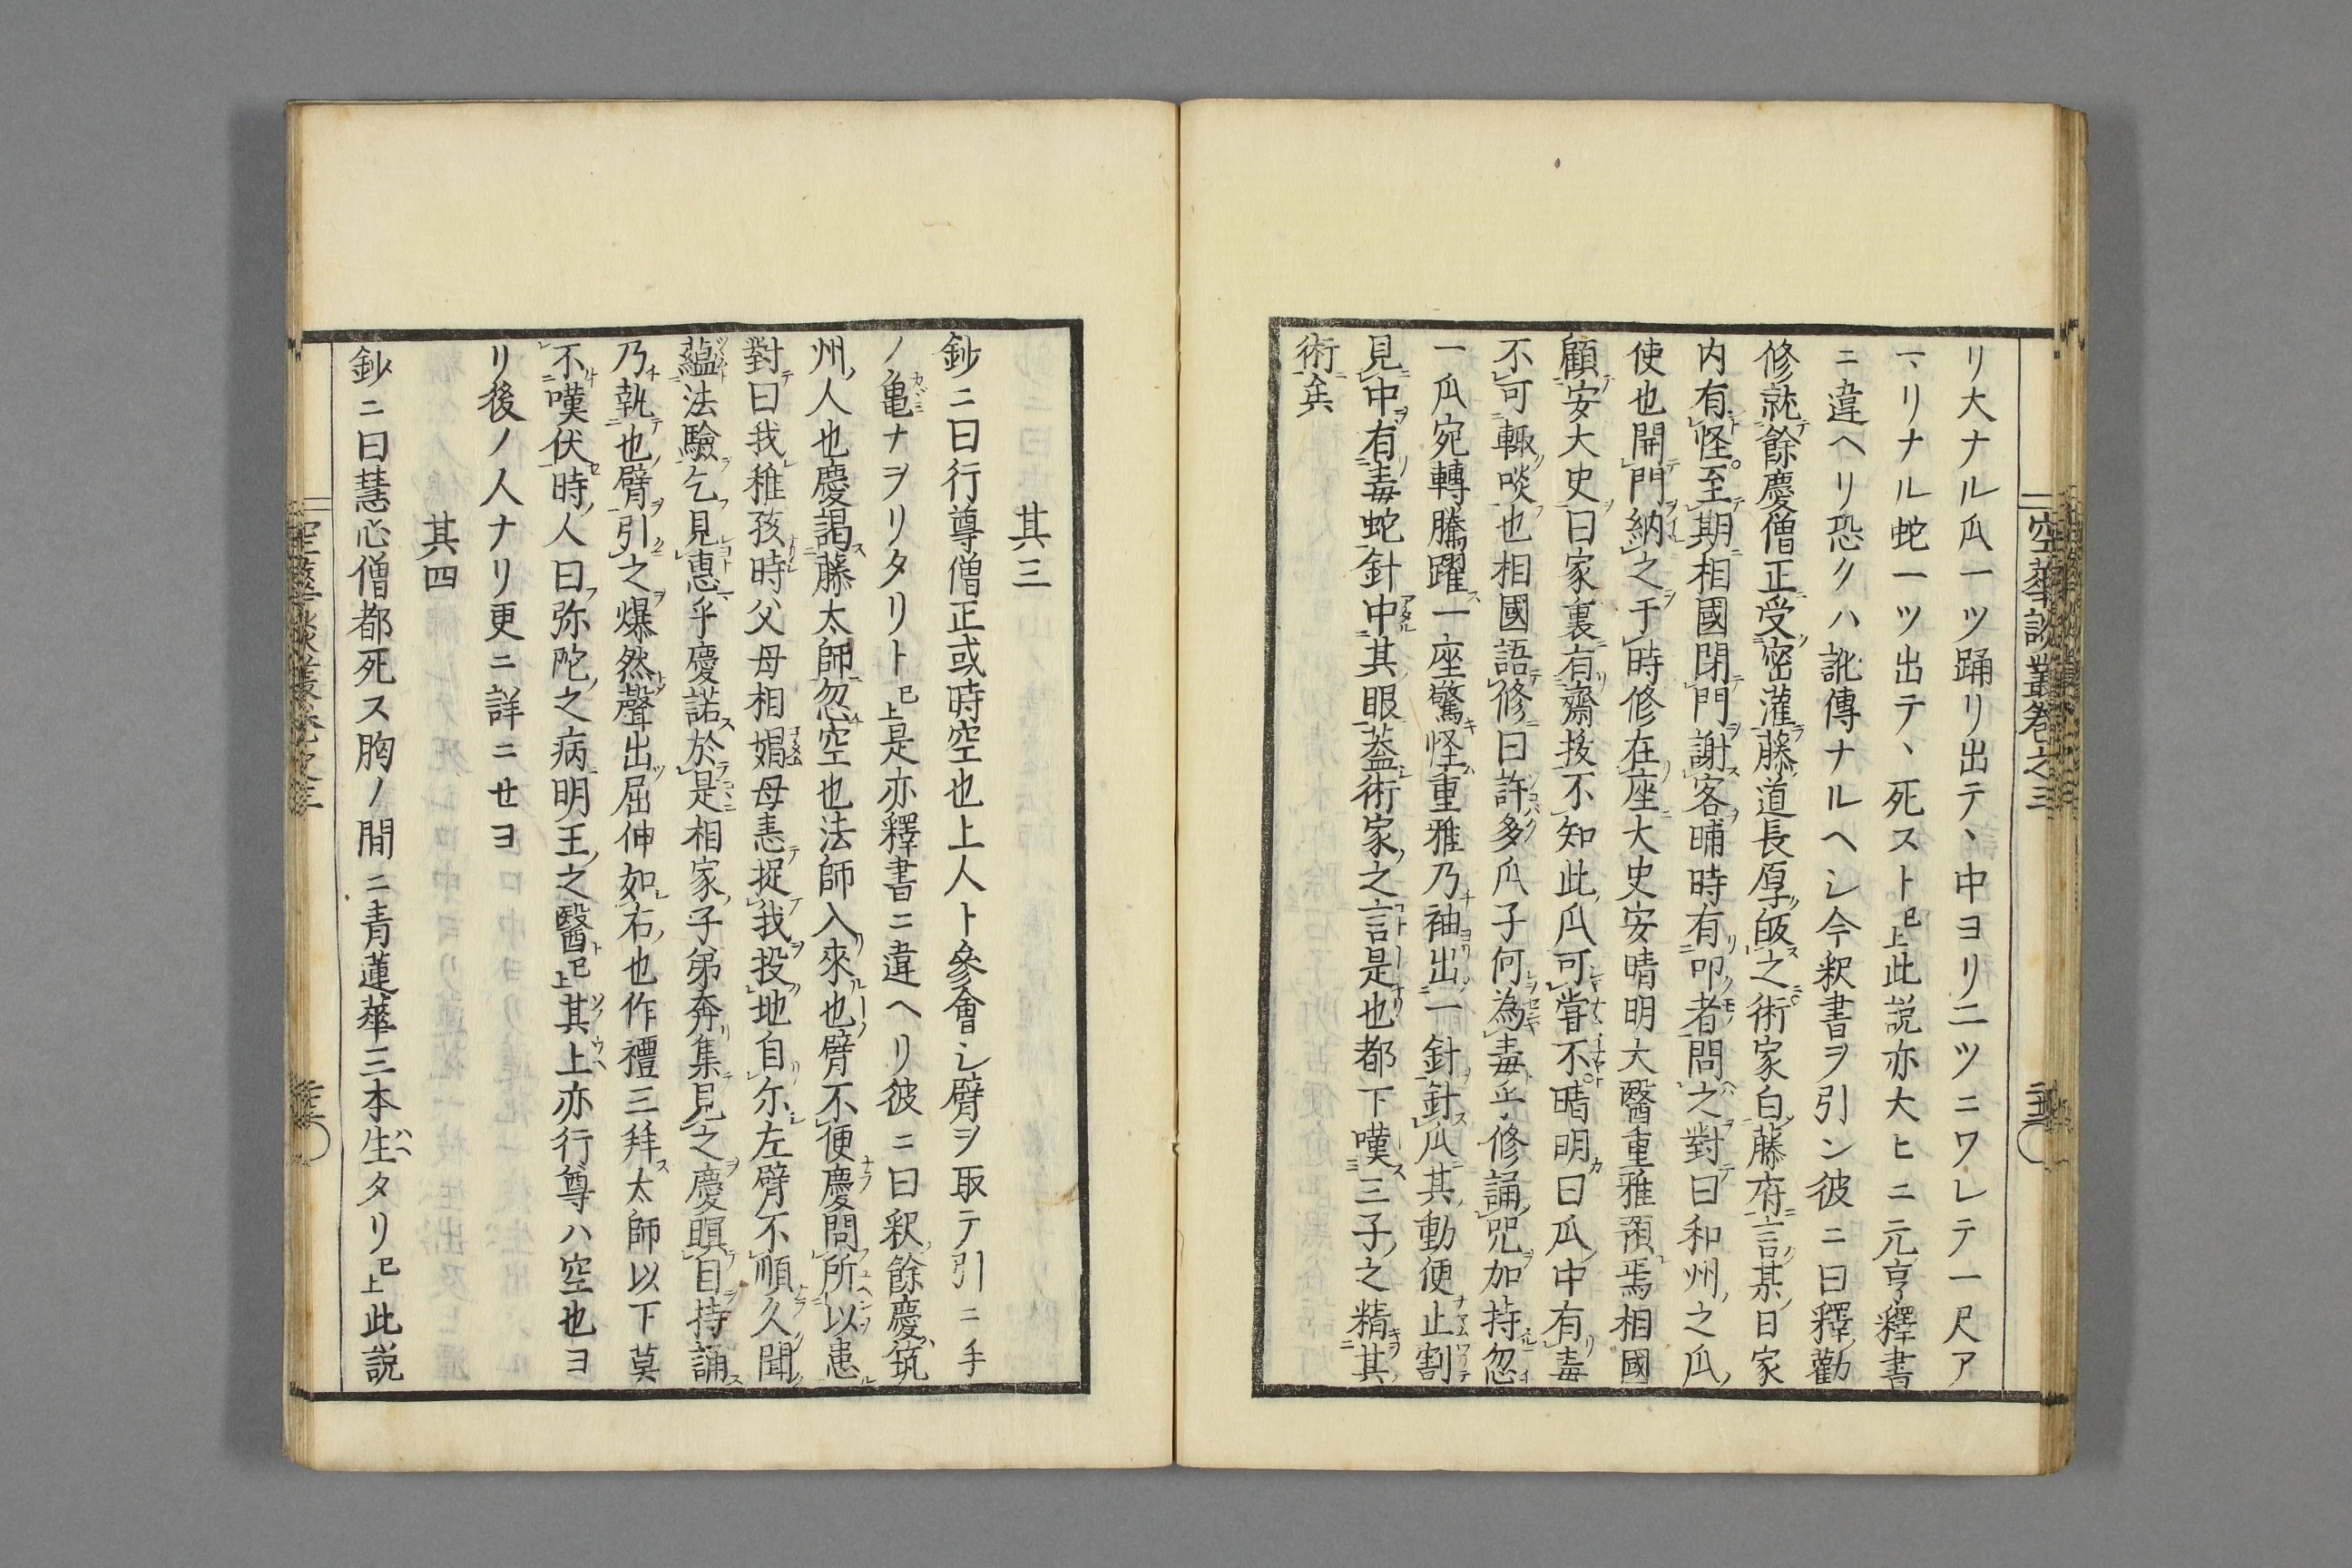 空華談叢卷之三
リ大ナル瓜一ツ踊リ出テヽ中ヨリ二ツニワレテ一尺ア
マリナル蛇一ツ出テヽ死スト已上此説亦大ヒニ元亨釋書
ニ違ヘリ恐クハ訛傳ナルヘシ今釈書ヲ引ン彼ニ曰釋勸
修就餘慶僧正受密灌藤道長厚皈之術家白藤府言某日家
内有怪至期相國閉門謝客晡時有叩者問之對曰和州之瓜
使也開門納之于時修在座大史安晴明大醫重雅預焉相國
顧安大史曰家裏有齋抜不知此瓜可甞不晴明曰瓜中有毒
不可輙啖也相國語修曰許多瓜子何為毒乎修誦咒加持忽
一瓜宛轉騰躍一座驚怪重雅乃袖出一針針瓜其動便止割
見中有毒蛇針中其眼葢術家之言是也都下嘆三子之精其
術矣
其三
鈔ニ曰行尊僧正或時空也上人ト參會シ臂ヲ取テ引ニ手
ノ亀ナヲリタリト已上是亦釋書ニ違ヘリ彼ニ曰釈餘慶筑
州人也慶謁藤太師忽空也法師入來也臂不便慶問所以恚
對曰我稚孩時父母相娟母恚捉我投地自尓左臂不順久聞
蘊法驗乞見惠乎慶諾於是相家子弟奔集見之慶瞑目持誦
乃執也臂引之爆然聲出屈伸如右也作禮三拜太師以下莫
不嘆伏時人曰弥陀之病明王之醫已上其上亦行尊ハ空也ヨ
リ後ノ人ナリ更ニ詳ニセヨ
其四
鈔ニ曰慧心僧都死ス胸ノ間ニ青蓮華三本生タリ已上此説